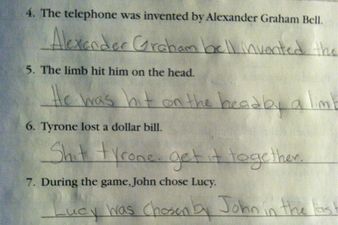 4. The telephone was invented by Alexander Graham Bell.
Alexander Graham bell invented the
5. The limb hit him on the head.
He was hit on the head by a limb
6. Tyrone lost a dollar bill.
Shit tyrone. get it together.
7. During the game, John chose Lucy.
Lucy was chosen by John in the last